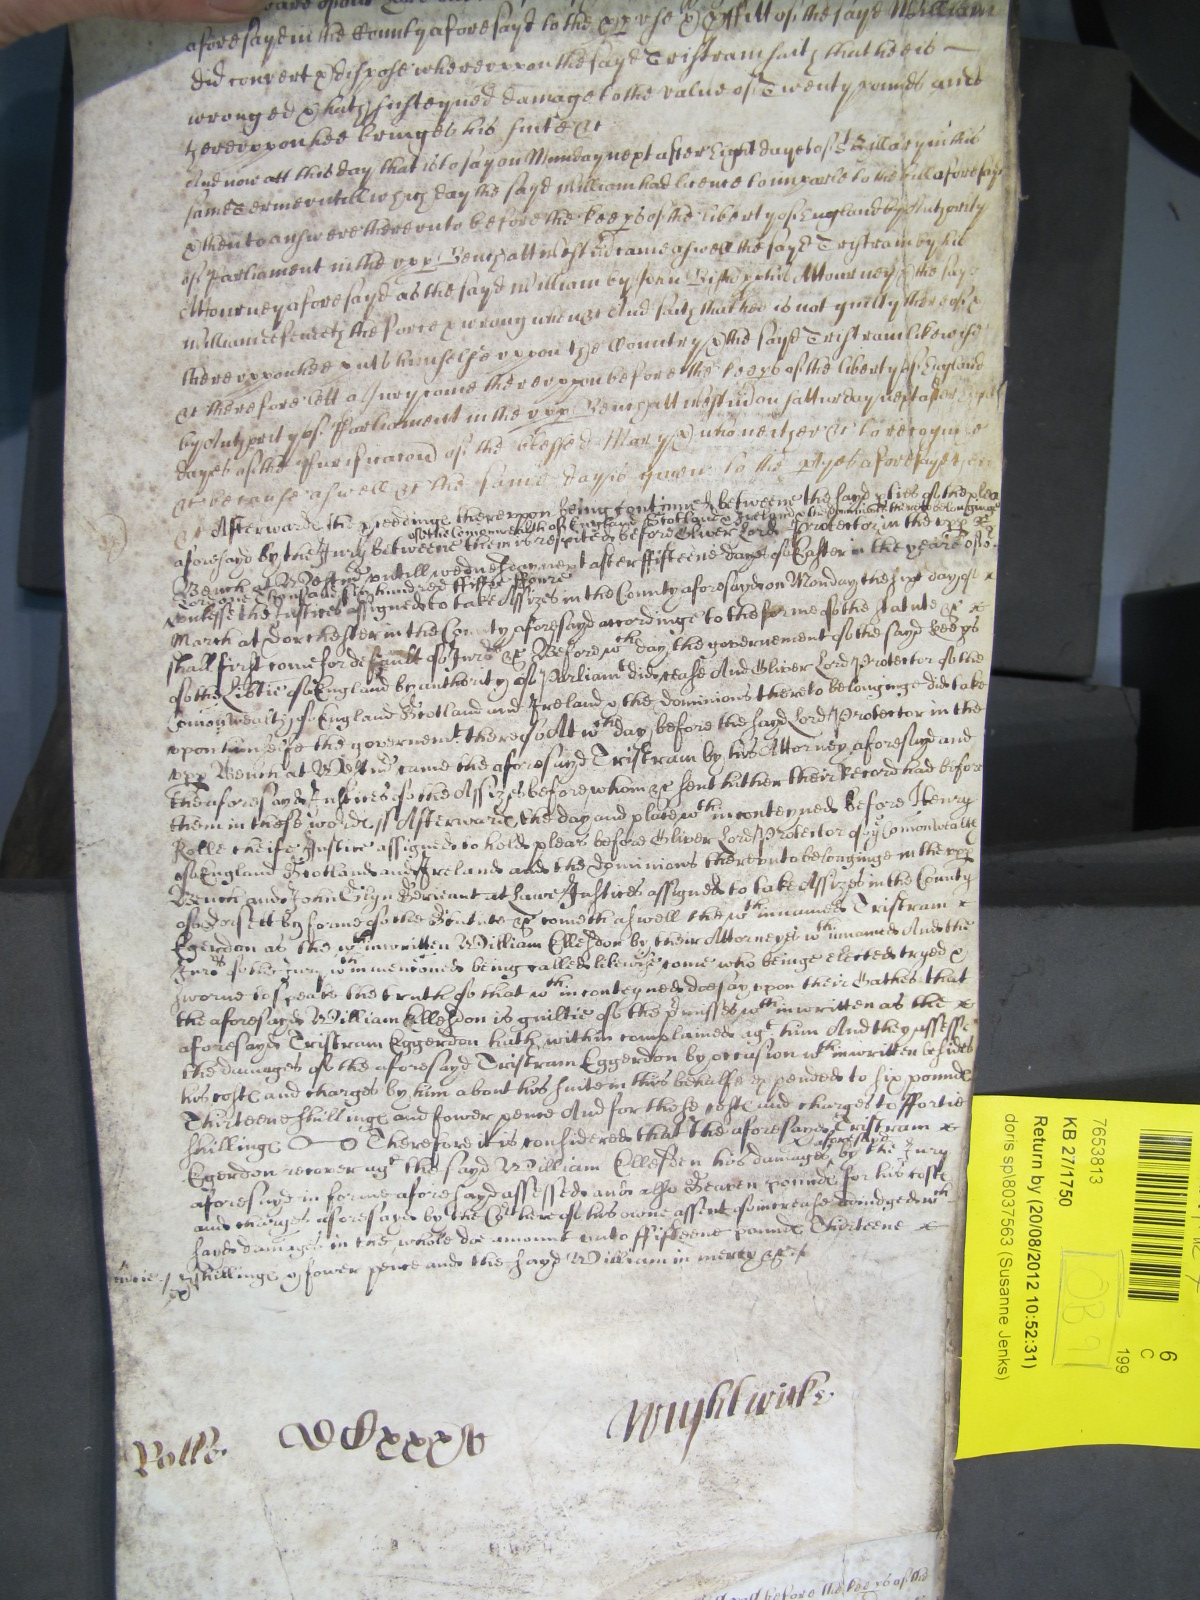 aforesayd in the County aforesayd to the upp use & p[ro]ffitt of the sayd William
did convert & dispose whereuppon the sayd Tristram saith that hee is
wronged & hath susteyned damage to the value of Twenty pounds and
thereuppon hee bringes his suite &c
And now att this day that is to say on Munday next after Eight dayes of St Hillary in this
same Terme untill which day the sayd William had licence to imparle to the bill aforesayd
& then to answere thereunto before the keeps of the liberty of England by Authority
of Parliament in the upp Bench att Westm came aswell the sayd Tristram by his
Attourney aforesayd as the sayd William by John Bishopp his Attourney & the sayd
William defendeth the force & wrong when &c And saith that hee is not guilty thereof &
thereuppon hee puts himselfe uppon the Country & the sayd Tristram likewise
&c therefore lett a Jury come thereuppon before the keeps of the liberty of England
by Authority of Parliament in the upp Bench att Westm on satturday next after Eight
dayes of the Purificacon of the blessed Mary & who neither &c to recognize
&c because aswell &c the same day is given to the ptyes aforesayd there
&c Afterwards the pceedings thereupon being continued betweene the sayd pties of the plea
of the Comonwealth of England Scotland & Ireland & the dominions thereto belonginge
aforesayd by the Jury betweene them is respited before Oliver Lord Protector in the upp
Bench at Westm untill wednesday next after fifteene dayes of Easter in the yeare of or
Lord one Thousand six hundred fiftie ffoure
unlesse the Justices assigned to take Assizes in the County aforesayd on Monday the sixt day of
March at Dorchester in the County aforesayd accordinge to the forme of the Statute &c
shall first come for default of Jurs &c Before wch day the governement of the sayd keeps
of the Libtie of England by authority of Parliamt did cease And Oliver Lord Protector of the
Comonwealth of England Scotland and Ireland & the dominions thereto belonginge did take
upon himselfe the governemt thereof At wch day before the sayd Lord Protector in the
upp Bench at Westm came the aforesayd Tristram by his Attorney aforesayd and
the aforesayd Justices of the Assizes before whom &c sent hither their Record had before
them in these words ss Afterwards the day and place wthin conteyned before Henry
Rolle cheife Justice assigned to hold pleas before Oliver Lord Protector of ye Comonwealth
of England Scotland and Ireland and the dominions thereunto belonginge in the upp
Bench and John Glyn Serieant at Lawe Justices assigned to take Assizes in the County
of Dorsett by forme of the Statute &c cometh aswell the wthin named Tristram
Egerdon as the wthin written William Ellesdon by their Attorneys wthin named And the
Jurs of the Jury wthin menconed being called likewise come who beinge elected tryed &
sworne to speake the truth of that wthin conteyned doe say upon their Oathes that
the aforesayd William Ellesdon is guiltie of the pmisses wthin written as the
aforesayd Tristram Eggerdon hath within complained agt him And they assesse
the damages of the aforesayd Tristram Eggerdon by occasion wthin written besides
his costs and charges by him about his suite in this behalfe expended to six pounds
Thirteene shillings and fower pence And for those costs and charges to ffortie
shillings Therefore it is considered that the aforesayd Tristram
Egerdon recover agt the sayd William Ellesden his damages aforesayd by the Jury
aforesayd in forme aforesayd assessed and also Seaven pounds for his costs
and charges aforesayd by the Cort here of his owne assent of increase adiudged wch
sayd damages in the whole doe amount unto ffifteene pounds Thirteene
shillings & fower pence and the sayd William in mercy &c
Rolle
Wightwicke
7653813
KB 27/1750
Return by (20/08/2012 10:52:31)
doris sp\8037563 (Susanne Jenks)
6
C
199
OB 9